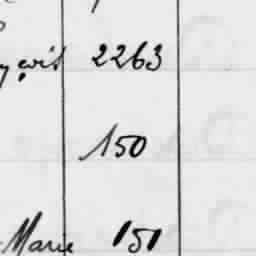 2263
150
Marie 151